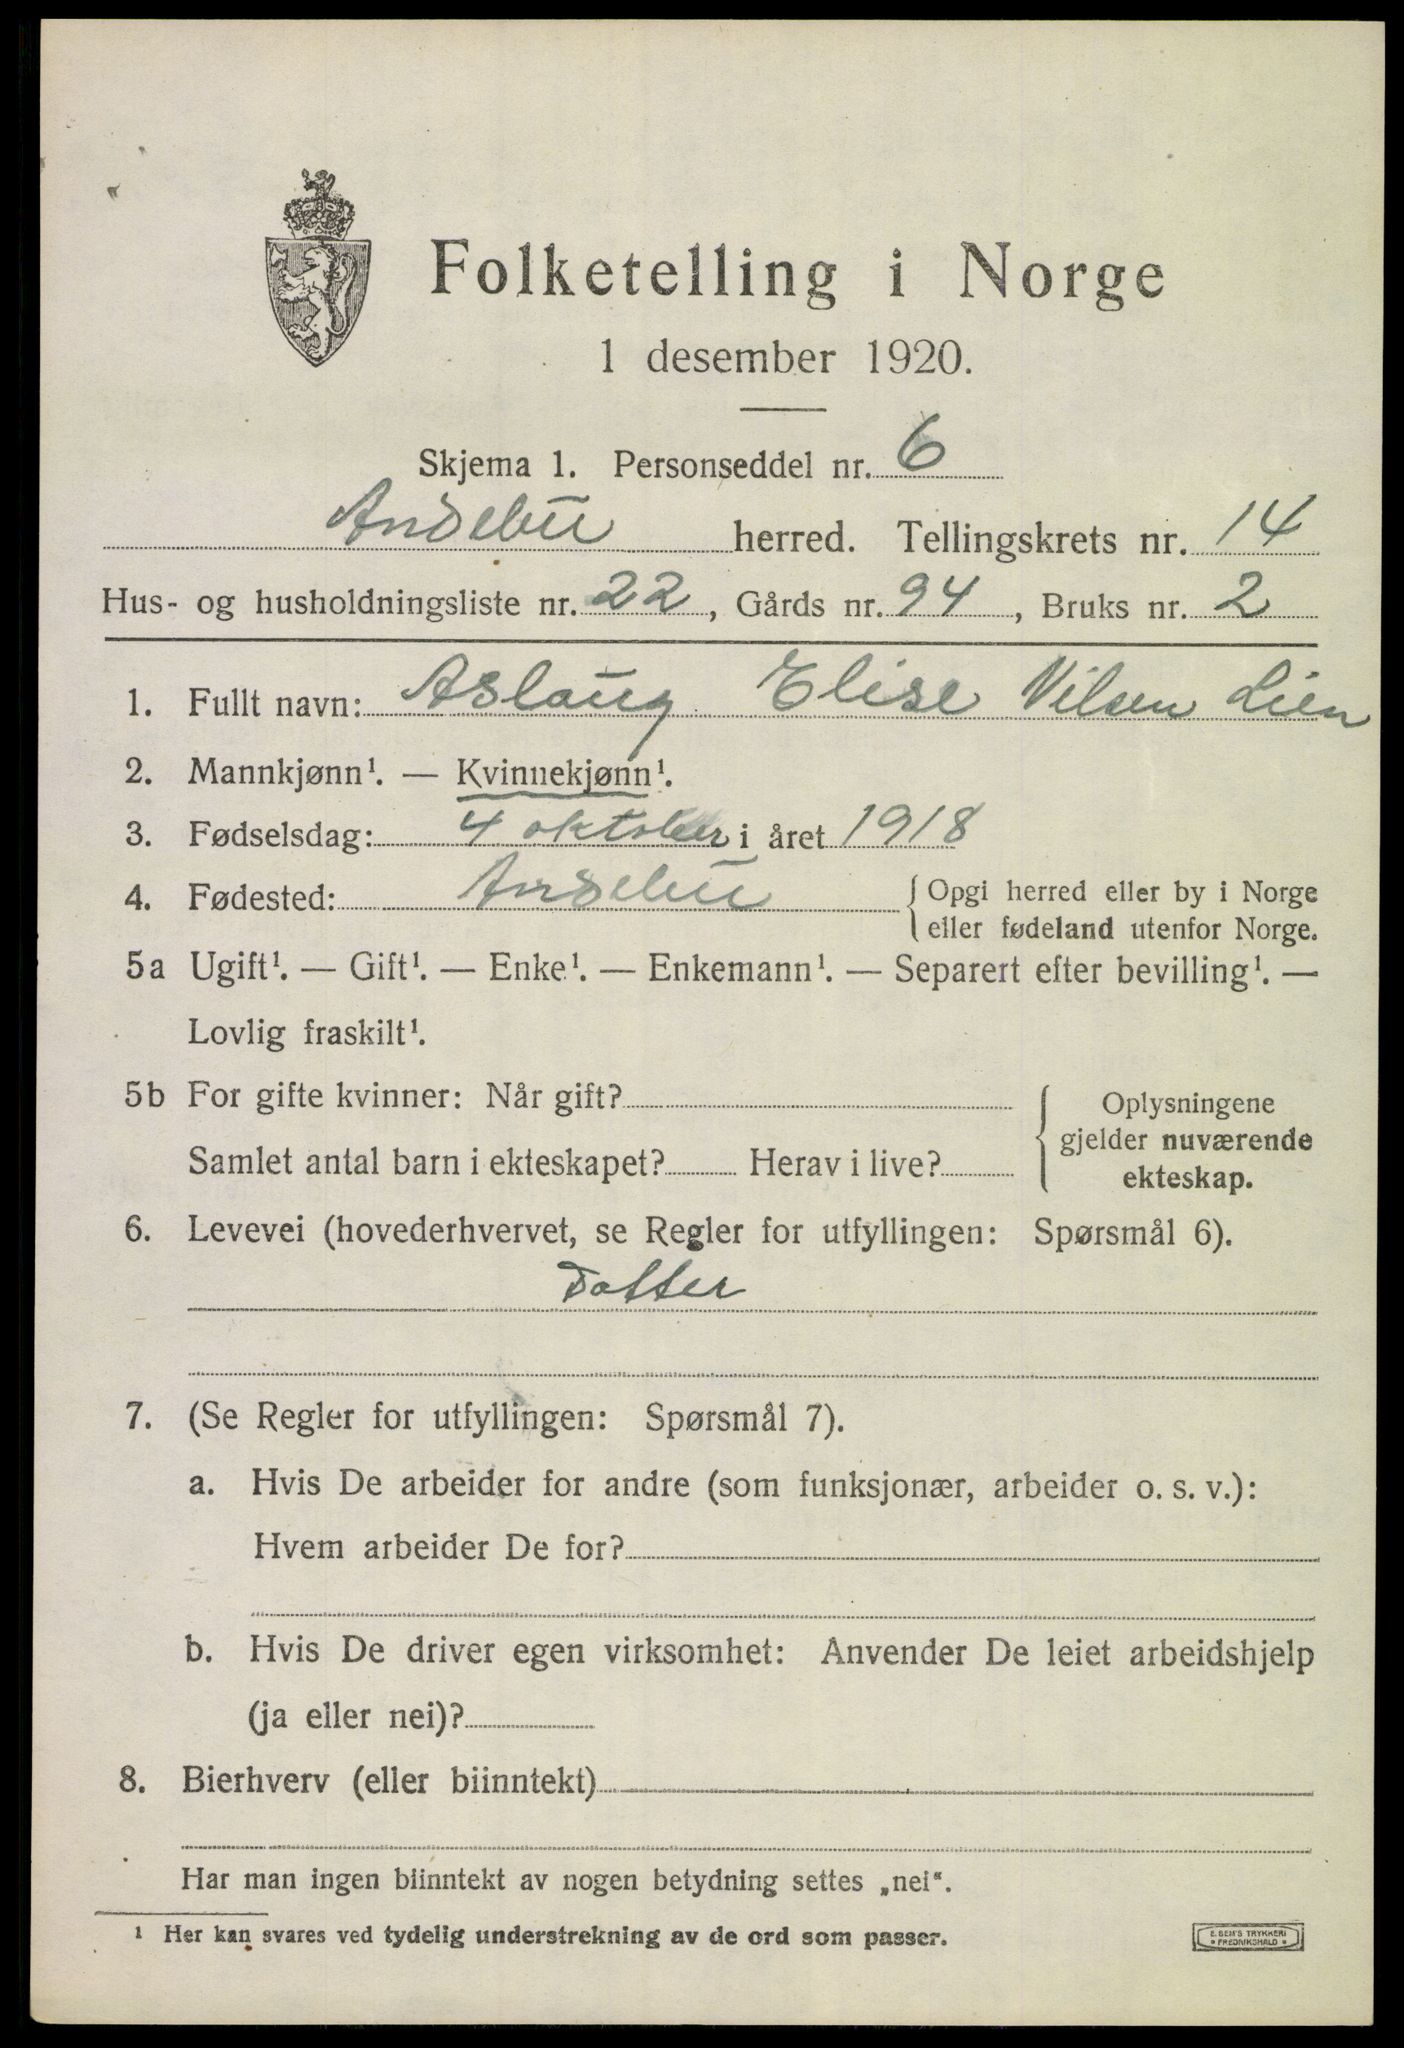 Folketelling i Norge
1 desember 1920.
Skjema 1. Personseddel nr. 6
Andebu herred. Tellingskrets nr. 14
Hus- og husholdningsliste nr. 22, Gårds nr. 94, Bruks nr. 2
1. Fullt navn: Aslaug Elise Nilsen Lien
2. Mannkjønn¹. — Kvinnekjønn¹.
3. Fødselsdag: 4 oktober i året 1918
4. Fødested: Andebu { Opgi herred eller by i Norge
eller fødeland utenfor Norge.
5a Ugift¹. — Gift¹. — Enke¹. — Enkemann¹. — Separert efter bevilling¹. —
Lovlig fraskilt¹.
5b For gifte kvinner: Når gift?
Samlet antal barn i ekteskapet? Herav i live?
Oplysningene
gjelder nuværende
ekteskap.
6. Levevei (hovederhvervet, se Regler for utfyllingen: Spørsmål 6).
Datter
7. (Se Regler for utfyllingen: Spørsmål 7).
a. Hvis De arbeider for andre (som funksjonær, arbeider o. s. v.):
Hvem arbeider De for?
b. Hvis De driver egen virksomhet: Anvender De leiet arbeidshjelp
(ja eller nei)?
8. Bierhverv (eller biinntekt)
Har man ingen biinntekt av nogen betydning settes „nei“.
¹ Her kan svares ved tydelig understrekning av de ord som passer.
E. SEM'S TRYKKERI
• FREDRIKSHALD •